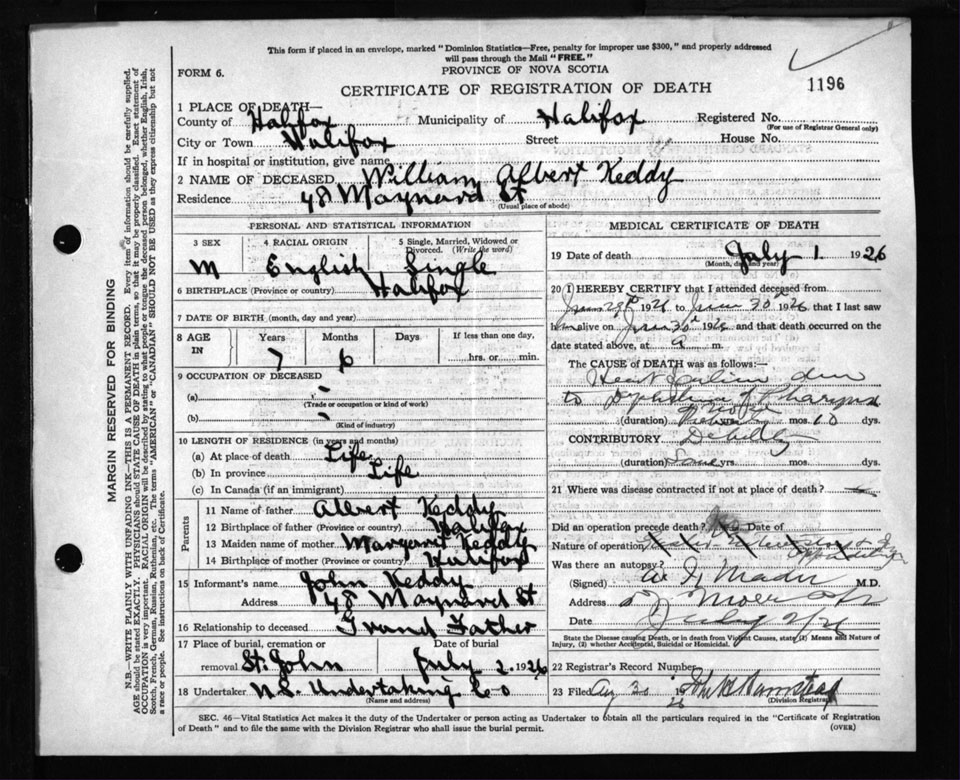 This form if placed in an envelope, marked "Dominion Statistics—Free, penalty for improper use $300," and properly addressed
will pass through the Mail "FREE."
FORM 6.
PROVINCE OF NOVA SCOTIA
CERTIFICATE OF REGISTRATION OF DEATH
1196
1 PLACE OF DEATH—
County of Halifax Municipality of Halifax Registered No.
(For use of Registrar General only)
City or Town Halifax Street House No.
If in hospital or institution, give name
2 NAME OF DECEASED William Albert Keddy
Residence 48 Maynard St
(Usual place of abode)
PERSONAL AND STATISTICAL INFORMATION
3 SEX 4 RACIAL ORIGIN 5 Single, Married, Widowed or
Divorced. (Write the word)
M English Single
6 BIRTHPLACE (Province or country) Halifax
7 DATE OF BIRTH (month, day and year)
8 AGE IN Years Months Days If less than one day,
7 6 hrs. or min.
9 OCCUPATION OF DECEASED
(a)
(Trade or occupation or kind of work)
(b)
(Kind of industry)
10 LENGTH OF RESIDENCE (in years and months)
(a) At place of death Life
(b) In province Life
(c) In Canada (if an immigrant)
Parents
11 Name of father Albert Keddy
12 Birthplace of father (Province or country) Halifax
13 Maiden name of mother Margaret Keddy
14 Birthplace of mother (Province or country) Halifax
15 Informant's name John Keddy
Address 48 Maynard St
16 Relationship to deceased Grand Father
17 Place of burial, cremation or Date of burial
removal St. John July 2. 1926
18 Undertaker N.S. Undertaking Co
(Name and address)
MEDICAL CERTIFICATE OF DEATH
19 Date of death July 1 1926
(Month, day and year)
20 I HEREBY CERTIFY that I attended deceased from
June 29th 1926 to June 30th 1926 that I last saw
him alive on June 30th 1926 and that death occurred on the
date stated above, at a m.
The CAUSE OF DEATH was as follows:
Heart Failure due
to Diphtheria of Pharynx
(duration) mos. 10 dys.
CONTRIBUTORY Debility
(duration) yrs. mos. dys.
21 Where was disease contracted if not at place of death?
Did an operation precede death? No Date of
Nature of operation
Was there an autopsy?
(Signed) M.D.
Address
Date July 2/26
State the Disease causing Death, or in death from Violent Causes, state (1) Means and Nature of
Injury, (2) whether Accidental, Suicidal or Homicidal.
22 Registrar's Record Number
23 Filed 1926
(Division Registrar)
SEC. 46—Vital Statistics Act makes it the duty of the Undertaker or person acting as Undertaker to obtain all the particulars required in the "Certificate of Registration
of Death" and to file the same with the Division Registrar who shall issue the burial permit.
(OVER)
MARGIN RESERVED FOR BINDING
N.B.—WRITE PLAINLY WITH UNFADING INK—THIS IS A PERMANENT RECORD. Every item of information should be carefully supplied.
AGE should be stated EXACTLY. PHYSICIANS should STATE CAUSE OF DEATH in plain terms, so that it may be properly classified. Exact statement of
OCCUPATION is very important. RACIAL ORIGIN will be described by stating to what people or tongue the deceased person belonged, whether English, Irish,
Scotch, French, German, Russian, Ruthenian, etc. The terms "AMERICAN" or "CANADIAN" SHOULD NOT BE USED as they express citizenship but not
a race or people. See instructions on back of Certificate.